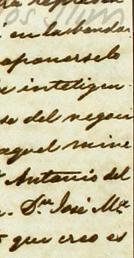 en las bandas
aponerselo
inteligen
so del negoci
aquel mine
Antonio del
Sr. José Ma.
que creo es